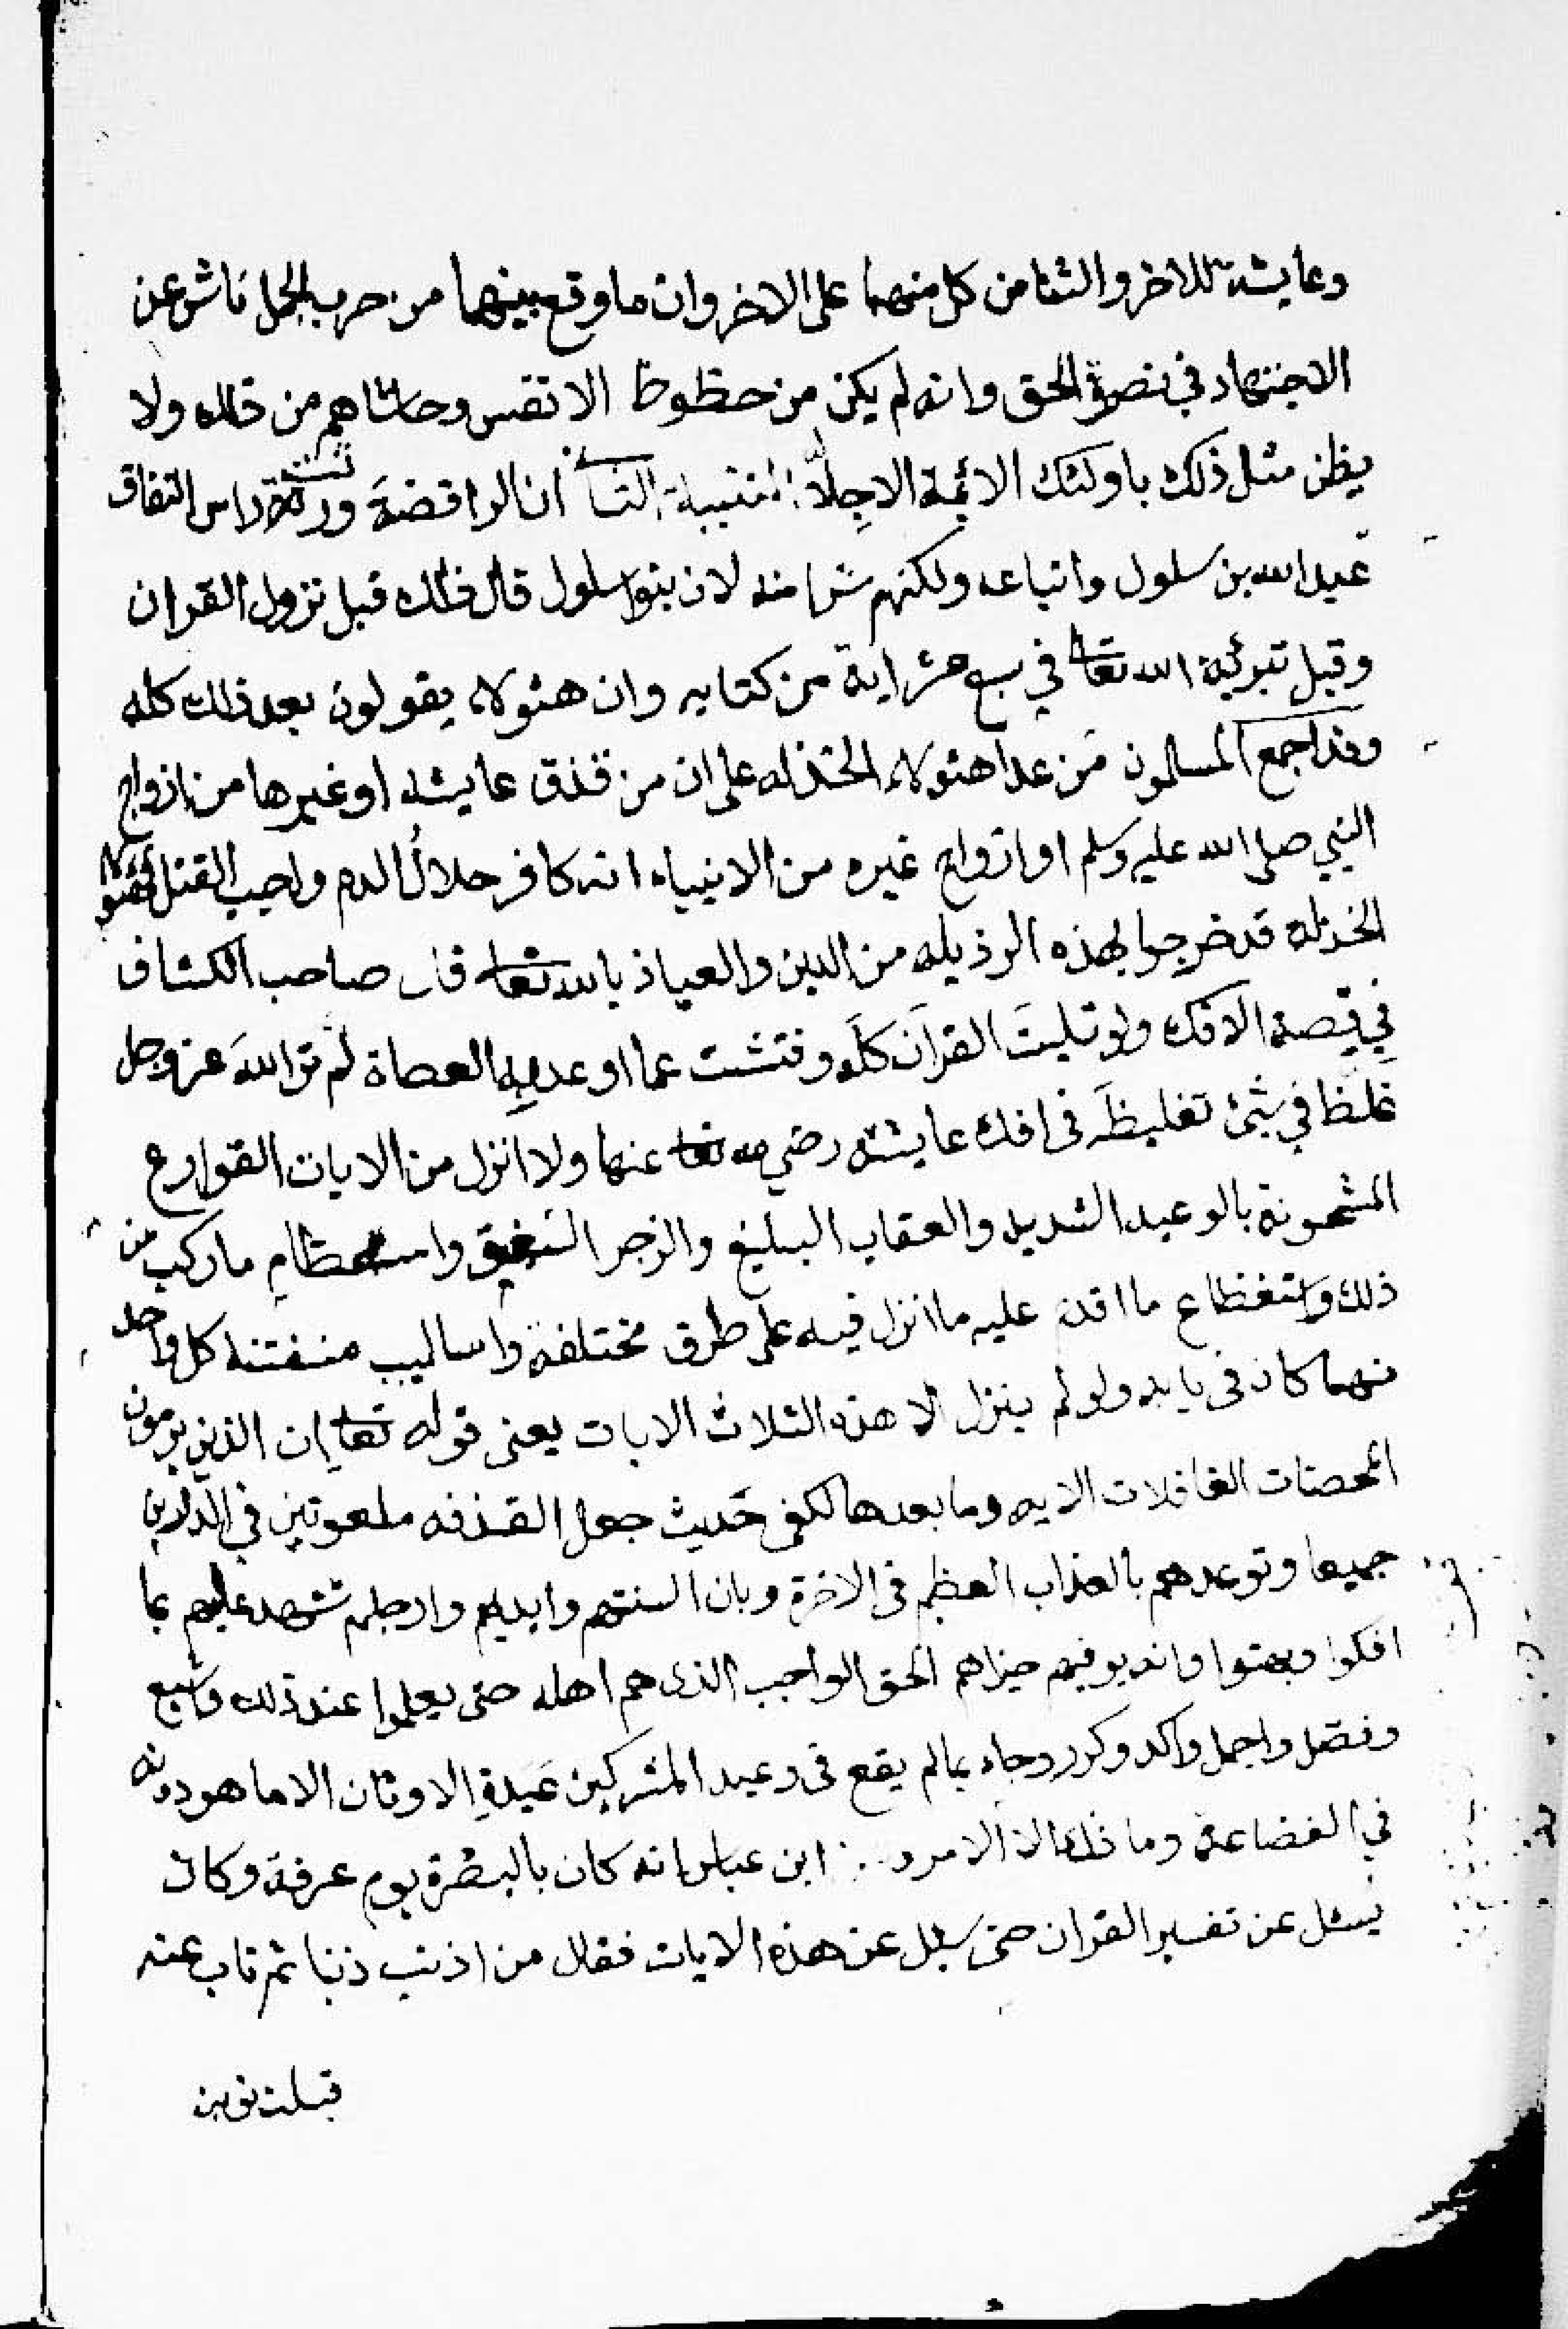 وعايشة للاخر والثنا من كل منهما على الاخر وان ما وقع بينهما من حرب الجمل ناش عن
الاجتهاد في نصرة الحق وانه لم يكن من حظوظ الانفس وحاشاهم من ذلك ولا
يظن مثل ذلك باولئك الائمة الاجلاء التنبيه الثا ان الرافضة ورثة راس النفاق
عبد الله بن سلول واتباعه ولكنهم شر منه لان بنوا سلول قال ذلك قبل نزول القران
وقبل تبرئية الله تعا في سبع عشر اية من كتابه وان هئولاء يقولون بعد ذلك كله
وقد اجمع المسلمون من عدا هئولاء الخذله على ان من قذف عايشه او غيرها من ازواج
النبي صلى الله عليه وسلم او ازواج غيره من الانبياء انه كافر حلال الدم واجب القتل فهئولاء
الخذله قد خرجوا بهذه الرذيله من الدين والعياذ بالله تعا قال صاحب الكشاف
في قصة الافك ولو تليت القران كله وفتشت عما اوعد به العصاة لم تر الله عز وجل
غلظ في شئ تغليظه في افك عايشة رضي الله تعا عنها ولا انزل من الايات القوارع
المشحونة بالوعيد الشديد والعقاب البليغ والزجر العنيف واستعظام ما ركب من
ذلك واستفظاع ما اقدم عليه ما انزل فيه على طرق مختلفة واساليب منفتنه كل واحد
منهما كان في بابه ولو لم ينزل الا هذه الثلاث الايات يعني قوله تعا ان الذين يرمون
المحصنات الغافلات الايه وما بعدها لكفى حيث جعل القذفه ملعونين في الدارين
جميعا وتوعدهم بالعذاب العظيم في الاخرة وبان السنتهم وايديهم وارجلهم تشهد عليهم بما
افكوا وبهتوا وانه يوفيهم جزاهم الحق الواجب الذي هم اهله حتى يعلموا عند ذلك واشبع
وفصل واجمل واكد وكرر وجاء بما لم يقع في وعيد المشركين عبدة الاوثان الا ما هو دونه
في الفضاعة وما ذلك الا لامر و ابن عباس انه كان بالبصرة يوم عرفة وكان
يسئل عن تفسير القران حتى سئل عن هذه الايات فقال من اذنب ذنبا ثم تاب عنه
قبلت توبته